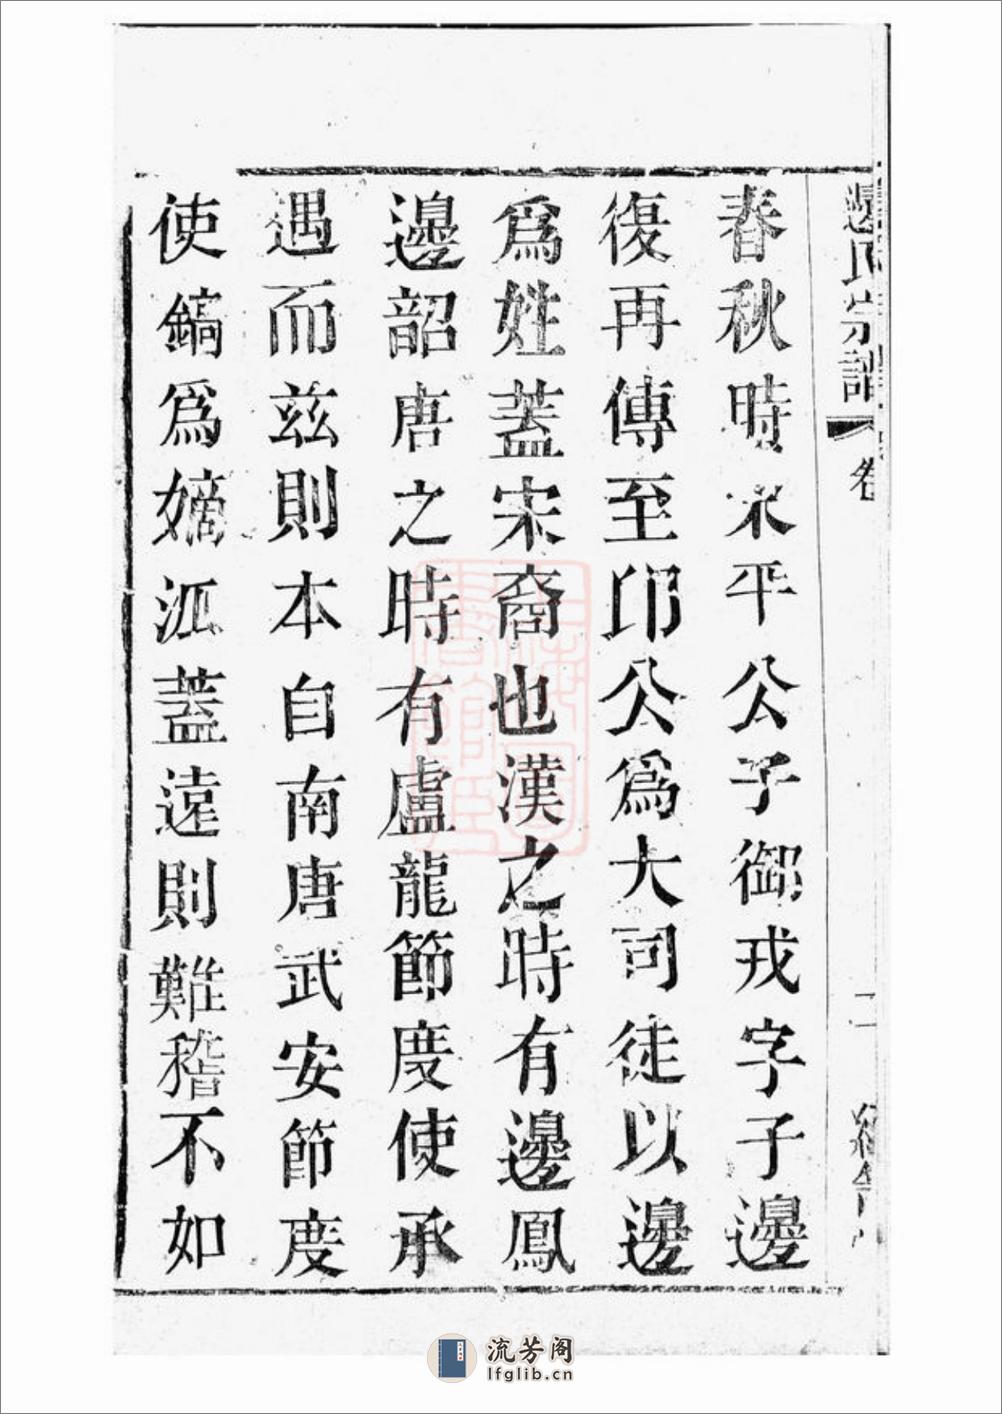 邊氏宗譜 卷 二
春秋時宋平公子御戎字子邊
復再傳至邙公爲大司徒以邊
爲姓蓋宋裔也漢之時有邊鳳
邊韶唐之時有盧龍節度使承
遇而茲則本自南唐武安節度
使鎬爲嫡派蓋遠則難稽不如
流芳阁
lfglib.cn